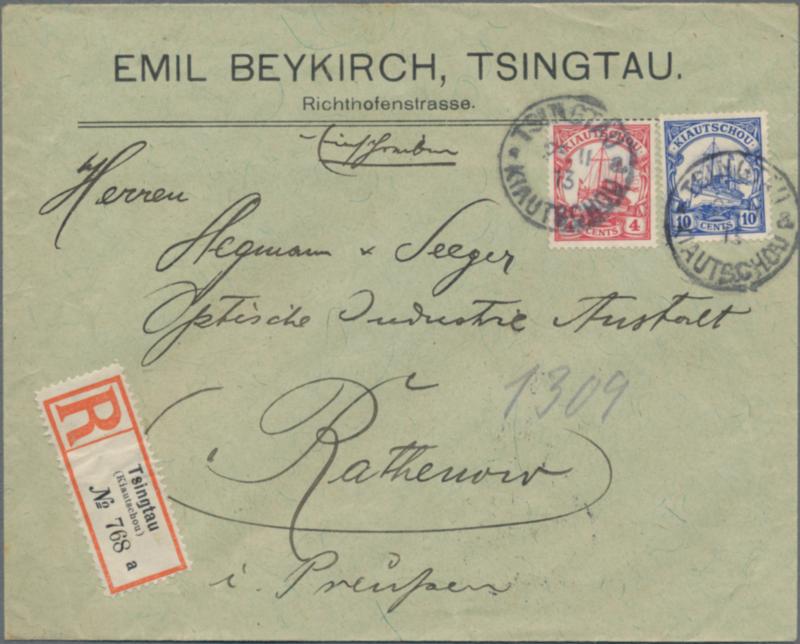 EMIL BEYKIRCH, TSINGTAU.
Richthofenstrasse.
Einschreiben
TSINGTAU
11
13
KIAUTSCHOU
KIAUTSCHOU
4 CENTS 4
KIAUTSCHOU
10 CENTS 10
TSINGTAU
13
KIAUTSCHOU
Herren
Hegmann & Seeger
Optische Industrie Anstalt
1309
Rathenow
i. Preußen
R
Tsingtau
(Kiautschou)
No 768 a